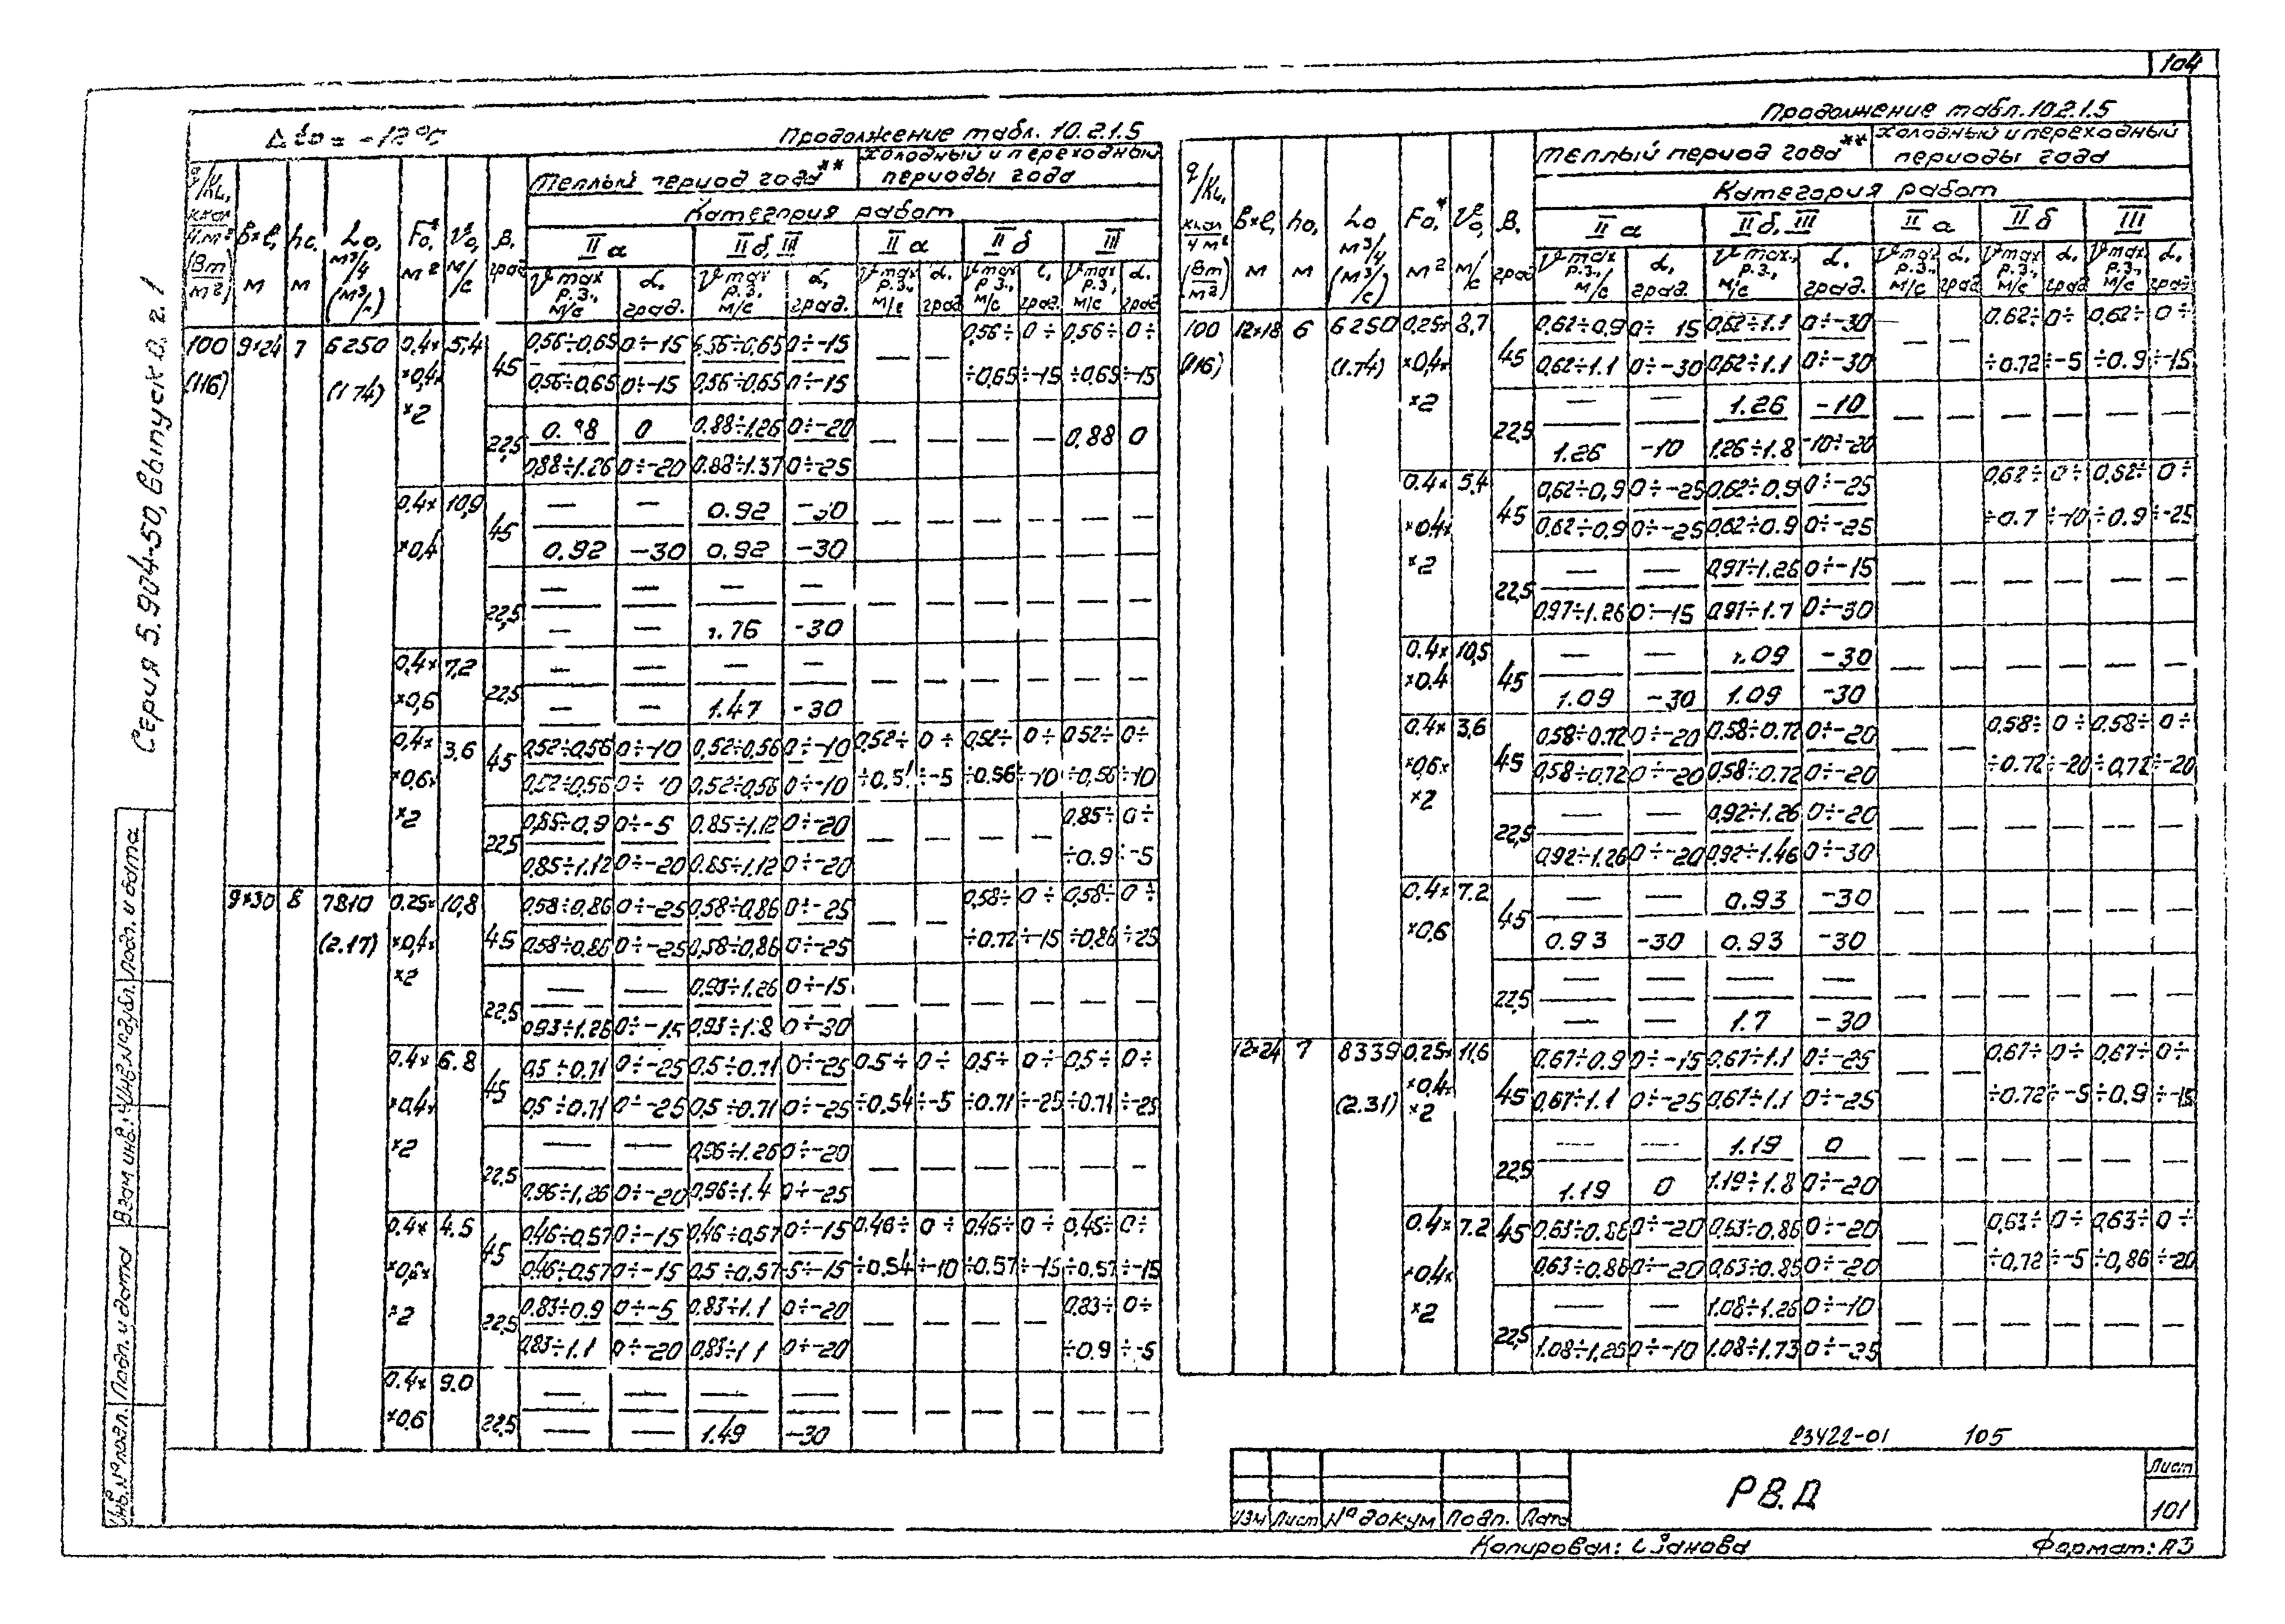 104
Δto = -12°C
Продолжение табл. 10.2.1.5
q/KL, ккал/ч.м² (Вт/м²) | в×l, м | ho, м | Lo, м³/ч (м³/с) | Fo*, м² | Vo, м/с | β, град | Теплый период года** | Холодный и переходный периоды года
Категория работ
II а | II б, III | II а | II б | III
Vmax р.з., м/с | α, град. | Vmax р.з., м/с | α, град. | Vmax р.з., м/с | α, град. | Vmax р.з., м/с | град. | Vmax р.з., м/с | α, град
100 (116) | 9×24 | 7 | 6250 (1.74) | 0,4××0,4××2 | 5,4 | 45 | 0,56÷0,65 | 0÷-15 | 0,56÷0,65 | 0÷-15 | — | — | 0,56÷ | 0÷ | 0,56÷ | 0÷
0,56÷0,65 | 0÷-15 | 0,56÷0,65 | 0÷-15 | ÷0,65 | ÷-15 | ÷0,65 | ÷-15
22,5 | 0 | 0.88÷1.26 | 0÷-20 | — | — | — | — | 0,88 | 0
0,88÷1.26 | 0÷-20 | 0.88÷1.37 | 0÷-25
0.4××0,4 | 10,9 | 45 | — | — | 0.92 | -30 | — | — | — | — | — | —
0.92 | -30 | 0.92 | -30
22,5 | — | — | — | — | — | — | — | — | — | —
— | — | 1.76 | -30
0.4××0,6 | 7,2 | 22,5 | — | — | — | — | — | — | — | — | — | —
— | — | 1.47 | -30
0,4××0,6××2 | 3,6 | 45 | 0,52÷0,56 | 0÷-10 | 0,52÷0,56 | 0÷-10 | 0,52÷ | 0÷ | 0,52÷ | 0÷ | 0.52÷ | 0÷
0,52÷0,56 | 0÷-10 | 0.52÷0,56 | 0÷-10 | ÷-5 | ÷0.56 | ÷-10 | ÷0,56 | ÷-10
22,5 | 0,85÷0,9 | 0÷-5 | 0.85÷1,12 | 0÷-20 | — | — | — | — | 0,85÷ | 0÷
0,85÷1.12 | 0÷-20 | 0.85÷1.12 | 0÷-20 | ÷0.9 | ÷-5
9×30 | 8 | 7810 (2.17) | 0.25××0,4××2 | 10,8 | 45 | 0,58÷0,86 | 0÷-25 | 0,58÷0,86 | 0÷-25 | 0,58÷ | 0÷ | 0,58÷ | 0÷
0,58÷0,86 | 0÷-25 | 0,58÷0,86 | 0÷-25 | ÷0.72 | ÷-15 | ÷0,86 | ÷-25
22,5 | — | — | 0.93÷1.26 | 0÷-15 | — | — | — | — | — | —
0.93÷1.26 | 0÷-15 | 0.93÷1.8 | 0÷-30
0.4××0,4××2 | 6.8 | 45 | 0,5÷0.71 | 0÷-25 | 0.5÷0.71 | 0÷-25 | 0.5÷ | 0÷ | 0,5÷ | 0÷ | 0,5÷ | 0÷
0,5÷0.71 | 0÷-25 | 0,5÷0.71 | 0÷-25 | ÷0.54 | ÷-5 | ÷0.71 | ÷-25 | ÷0.71 | ÷-25
22,5 | — | — | 0,96÷1.26 | 0÷-20 | — | — | — | — | — | —
0.96÷1,26 | 0÷-20 | 0,96÷1.4 | 0÷-25
0.4××0,6××2 | 4.5 | 45 | 0,46÷0,57 | 0÷-15 | 0,46÷0,57 | 0÷-15 | 0.46÷ | 0÷ | 0,46÷ | 0÷ | 0,46÷ | 0÷
0,46÷0,57 | 0÷-15 | 0.5÷0,57 | 5÷-15 | ÷0.54 | ÷-10 | ÷0.57 | ÷-15 | ÷0.57 | ÷-15
22,5 | 0.83÷0.9 | 0÷-5 | 0.83÷1.1 | 0÷-20 | — | — | — | — | 0,83÷ | 0÷
0,83÷1.1 | 0÷-20 | 0,83÷1.1 | 0÷-20 | ÷0.9 | ÷-5
0.4××0,6 | 9.0 | 22,5 | — | — | — | — | — | — | — | — | — | —
— | — | 1.49 | -30
Продолжение табл.10.2.1.5
q/KL, ккал/ч м² (Вт/м²) | в×l, м | ho, м | Lo м³/ч (м³/с) | Fo*, м² | Vo, м/с | β, град | Теплый период года** | Холодный и переходный периоды года
Категория работ
II а | II б, III | II а | II б | III
Vmax р.з., м/с | α, град. | Vmax р.з., м/с | α, град. | Vmax р.з., м/с | α, град | Vmax р.з., м/с | α, град | Vmax р.з., м/с | α, град
100 (116) | 12×18 | 6 | 6250 (1.74) | 0,25××0,4××2 | 8,7 | 45 | 0,62÷0,9 | 0÷-15 | 0,62÷1.1 | 0÷-30 | — | — | 0.62÷ | 0÷ | 0,62÷ | 0÷
0,62÷1.1 | 0÷-30 | 0,62÷1.1 | 0÷-30 | ÷0.72 | ÷-5 | ÷0.9 | ÷-15
22,5 | — | — | 1.26 | -10 | — | — | — | — | — | —
1.26 | -10 | 1.26÷1.8 | -10÷-20
0.4××0.4××2 | 5,4 | 45 | 0,62÷0,9 | 0÷-25 | 0,62÷0.9 | 0÷-25 | — | — | 0,62÷ | 0÷ | 0,62÷ | 0÷
0,62÷0.9 | 0÷-25 | 0,62÷0.9 | 0÷-25 | ÷0.7 | ÷-10 | ÷0.9 | ÷-25
22,5 | — | — | 0,97÷1.26 | 0÷-15 | — | — | — | — | — | —
0.97÷1.26 | 0÷-15 | 0.97÷1.7 | 0÷-30
0.4××0.4 | 10,5 | 45 | — | — | 1.09 | -30 | — | — | — | — | — | —
1.09 | -30 | 1.09 | -30
0.4××0,6××2 | 3,6 | 45 | 0.58÷0.72 | 0÷-20 | 0.58÷0.72 | 0÷-20 | — | — | 0,58÷ | 0÷ | 0.58÷ | 0÷
0,58÷0,72 | 0÷-20 | 0.58÷0.72 | 0÷-20 | ÷0.72 | ÷-20 | ÷0,72 | ÷-20
22,5 | — | — | 0,92÷1.26 | 0÷-20 | — | — | — | — | — | —
0,92÷1.26 | 0÷-20 | 0,92÷1.46 | 0÷-30
0.4××0,6 | 7.2 | 45 | — | — | 0.93 | -30 | — | — | — | — | — | —
0.93 | -30 | 0.93 | -30
22,5 | — | — | — | — | — | — | — | — | — | —
— | — | 1.7 | -30
12×24 | 7 | 8339 (2.31) | 0,25××0,4××2 | 11,6 | 45 | 0.67÷0.9 | 0÷-15 | 0,67÷1.1 | 0÷-25 | — | — | 0,67÷ | 0÷ | 0,67÷ | 0÷
0,67÷1.1 | 0÷-25 | 0,67÷1.1 | 0÷-25 | ÷0.72 | ÷-5 | ÷0.9 | ÷-15
22,5 | — | — | 1.19 | 0 | — | — | — | — | — | —
1.19 | 0 | 1.19÷1.8 | 0÷-20
0.4××0,4××2 | 7.2 | 45 | 0,63÷0.86 | 0÷-20 | 0,63÷0.86 | 0÷-20 | — | — | 0,63÷ | 0÷ | 0,63÷ | 0÷
0,63÷0.86 | 0÷-20 | 0,63÷0.86 | 0÷-20 | ÷0,72 | ÷-5 | ÷0,86 | ÷-20
22,5 | — | — | 1.08÷1.26 | 0÷-10 | — | — | — | — | — | —
1.08÷1.26 | 0÷-10 | 1.08÷1.73 | 0÷-25
Серия 5.904-50, выпуск 0, г. 1
Инв.№подл. | Подп. и дата | Взам инв.№ | Инв.№дубл. | Подп. и дата
23422-01 105
Изм | Лист | № докум | Подп. | Дата
РВ.Д
Лист
101
Копировал:
Формат: А3